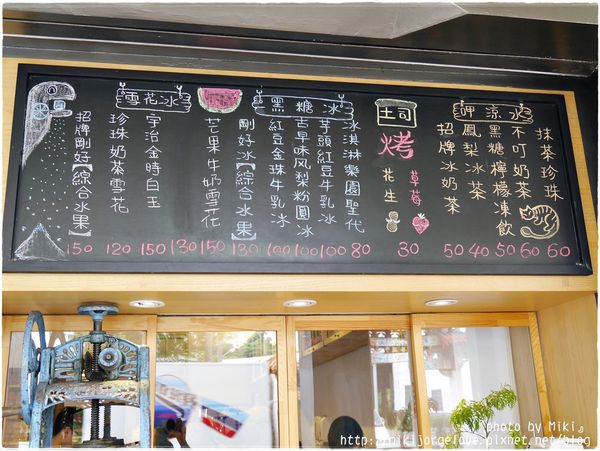 雪花冰
招牌剛好【綜合水果】
珍珠奶茶雪花
宇治金時白玉
芒果牛奶雪花
黑糖冰
剛好冰【綜合水果】
紅豆金珠牛乳冰
古早味鳳梨粉圓冰
芋頭紅豆牛乳冰
冰淇淋樂園聖代
土司
烤
花生
草莓
呷涼水
招牌冰奶茶
鳳梨冰茶
黑糖檸檬凍飲
不叮奶茶
抹茶珍珠
150 120 150 130 150 130 100 100 100 80 30 50 40 50 60 60
photo by Miki
http://mikijorgelove.pixnet.net/blog